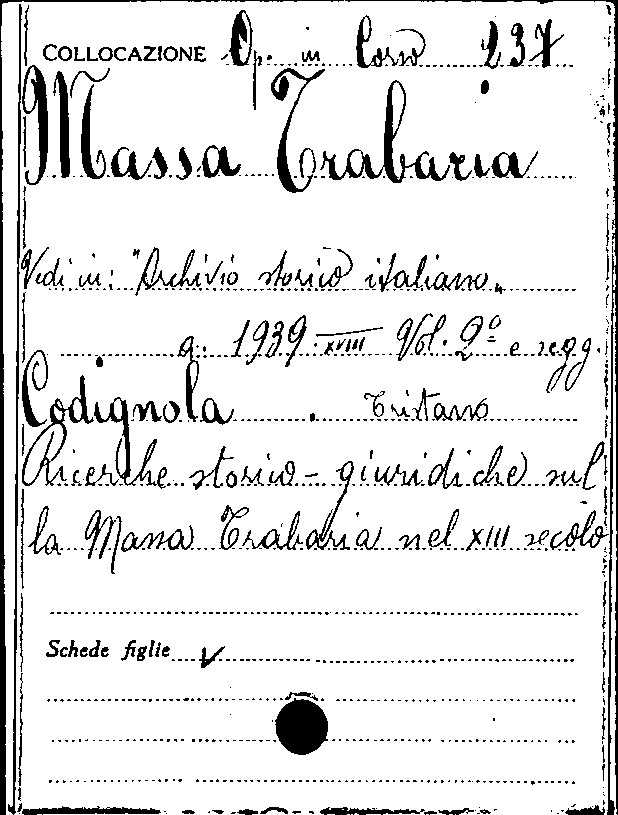 COLLOCAZIONE Op. in Corso 237
Massa Trabaria
Vedi in: "Archivio storico italiano„
a. 1939.XVIII Vol. 2º e segg.
Codignola . Tristano
Ricerche storico-giuridiche sul
la Massa Trabaria nel XIII secolo
Schede figlie V